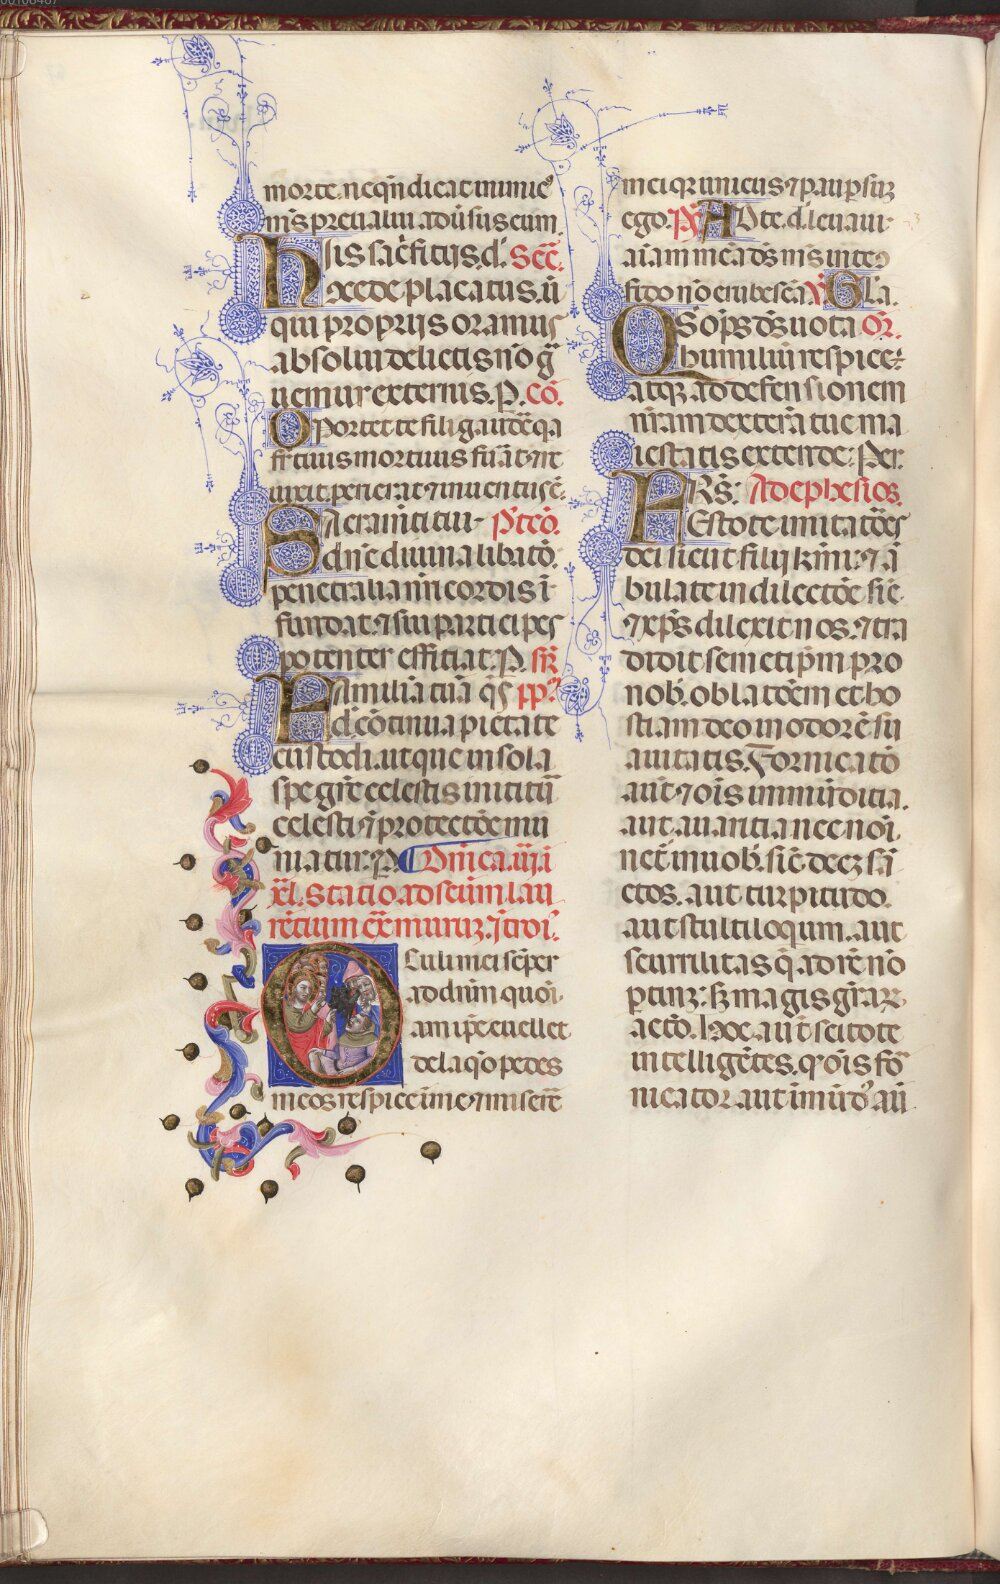 morte. neqn̄dicat inimic᷒
m̄s preualui aduſus eum.
His sac̄ficijs. d. Sec̄.
n̄e de placatus. ū
qui proprijs oramur
absolui delictis nō g̃
uemur externis. P. Cō.
Oportet te fili gaudē qa
fr̄ tuus mortuus fuāt ⁊ re
uixit. perierat ⁊ inuentus ē.
Sacram̄ti tui Ptcō.
dn̄e diuina libatō.
penetralia nr̄i cordis ī
fundat. ⁊ sui participes
potenter efficiat. P. Sr̄
Familiā tuā qs̄ pp̄l.
d. cōtinua pietate
custodi. ut que in sola
spe gr̄e celestis initit̄
celesti ⁊ protectōe mu
niatur. P. Dn̄ica. iii. i
xl. Statio. ad scūm lau
rētium ex̄ muruz. Ītroi.
Oculi mei sēper
ad dn̄m quoi.
am ip̄e euellet
de laqo pedes
meos respice ī me ⁊ misere
mei qr unicus ⁊ paup suz
ego. Ps̄ Ad te. d. leuaui
aiam meā ds̄ ms̄ in te
fido nō erubescā. V. Gla.
Qs op̄s ds̄ uota Or̄.
humiliū respice:
atqz. ad defensionem
nr̄am dexterā tue ma
iestatis extende: Per.
Frs̄: Ad ephesios.
Estote imitatōes
dei sicut filij kmi: ⁊ ā
bulate in dilectōe sic̄
⁊ xp̄s dilexit nos. ⁊ tra
didit semetip̄m pro
nob. oblatōem et ho
stiam deo in odorē su
auitatis. Fornicatō
aūt ⁊ oīs inmūditia.
aut. auaritia nec noī
net̄ in uob. sic̄ decz sā
ctos. aut turpitudo.
aut stultiloqum. aut
scurrilitas q̄ ad rē nō
ptinz: sz magis gr̄az
actō. Hoc. aūt scitote
intelligētes. qʼ oīs fo
nicator. aut īmūd᷒ aū